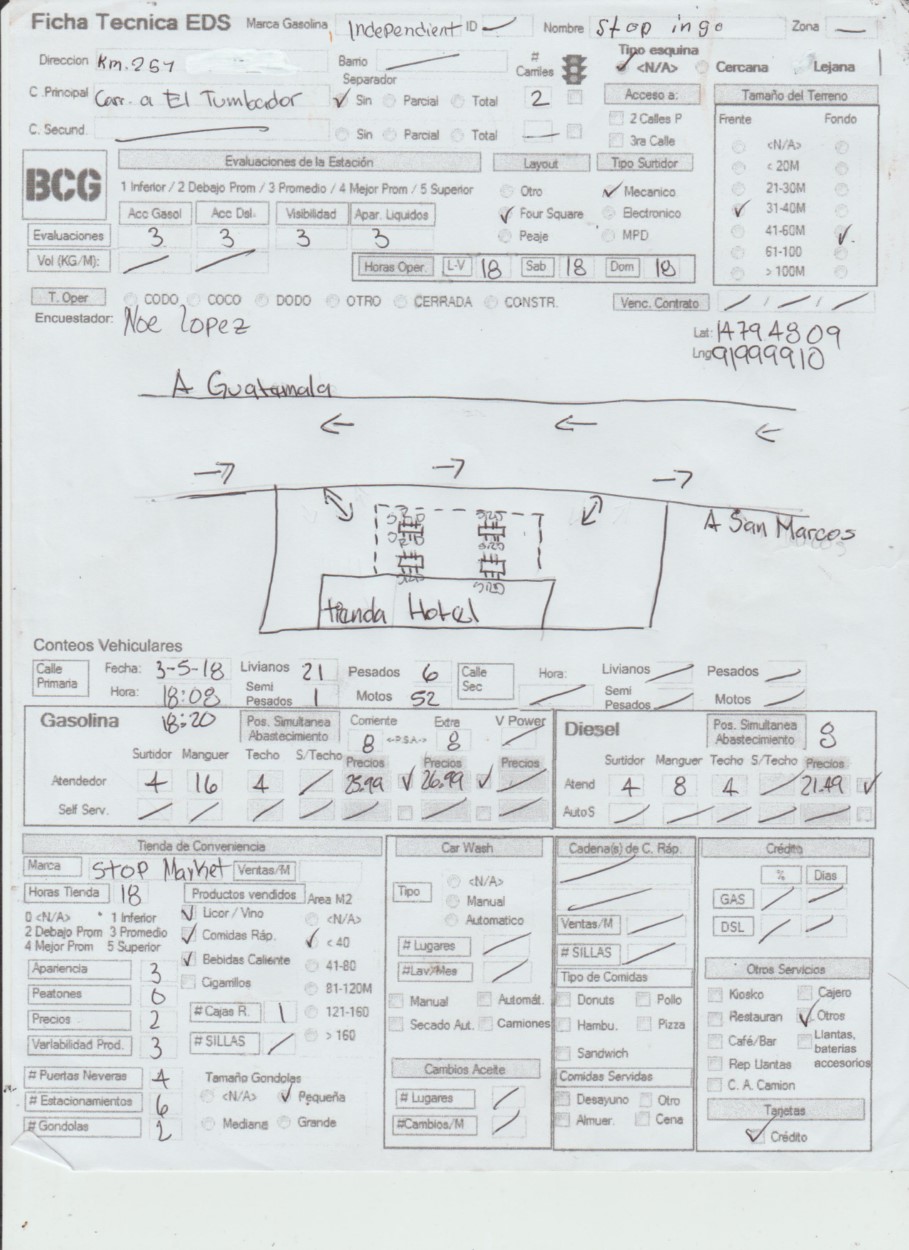 Ficha Tecnica EDS Marca Gasolina Independient ID — Nombre Stop ingo Zona —
Direccion Km. 264 Barrio — # Carriles Tipo esquina ✓ <N/A> Cercana Lejana
C .Principal Carr. a El Tumbador Separador ✓ Sin Parcial Total 2 Acceso a: Tamaño del Terreno
C. Secund. — Sin Parcial Total — 2 Calles P Frente Fondo
3ra Calle <N/A>
BCG Evaluaciones de la Estación Layout Tipo Surtidor < 20M
1 Inferior / 2 Debajo Prom / 3 Promedio / 4 Mejor Prom / 5 Superior Otro ✓ Mecanico 21-30M
Acc Gasol Acc Dsl. Visibilidad Apar. Liquidos ✓ Four Square Electronico ✓ 31-40M
Evaluaciones 3 3 3 3 Peaje MPD 41-60M ✓
Vol (KG/M): / / Horas Oper. L-V 18 Sab 18 Dom 18 61-100
> 100M
T. Oper CODO COCO DODO OTRO CERRADA CONSTR. Venc. Contrato / / / / /
Encuestador: Noe lopez
Lat: 14794809
Lng 91999910
A Guatamala
A San Marcos
tienda Hotel
Conteos Vehiculares
Calle Primaria Fecha: 3-5-18 Livianos 21 Pesados 6 Calle Sec Hora: / Livianos / Pesados /
Hora: 18:08 Semi Pesados 1 Motos 52 Semi Pesados / Motos /
Gasolina 18:20 Pos. Simultanea Abastecimiento Corriente 8 <-P.S.A-> Extre 8 V Power / Diesel Pos. Simultanea Abastecimiento 8
Surtidor Manguer Techo S/Techo Precios Precios Precios Surtidor Manguer Techo S/Techo Precios
Atendedor 4 16 4 / 25.99 ✓ 26.99 ✓ / Atend 4 8 4 / 21.49 ✓
Self Serv. / / / / / / / AutoS / / / / /
Tienda de Conveniencia Car Wash Cadena(s) de C. Ráp. Crédito
Marca Stop Market Ventas/M
Horas Tienda 18 Productos vendidos Area M2
0 <N/A> * 1 Inferior
2 Debajo Prom 3 Promedio
4 Mejor Prom 5 Superior
✓ Licor / Vino
✓ Comidas Ráp.
✓ Bebidas Caliente
Cigarrillos
<N/A>
✓ < 40
41-80
81-120M
121-160
> 160
Apariencia 3
Peatones 0
Precios 2
Variabilidad Prod. 3
# Cajas R. 1
# SILLAS /
# Puertas Neveras 4
# Estacionamientos 6
# Gondolas 2
Tamaño Gondolas
<N/A> ✓ Pequeña
Mediana Grande
Tipo <N/A>
Manual
Automatico
# Lugares /
#Lav/Mes /
Manual Automát.
Secado Aut. Camiones
Cambios Aceite
# Lugares /
#Cambios/M /
Ventas/M /
# SILLAS /
Tipo de Comidas
Donuts Pollo
Hambu. Pizza
Sandwich
Comidas Servidas
Desayuno Otro
Almuer. Cena
% Dias
GAS / /
DSL / /
Otros Servicios
Kiosko Cajero
Restauran ✓ Otros
Café/Bar Llantas, baterias accesorios
Rep Llantas
C. A. Camion
Tarjetas
✓ Crédito